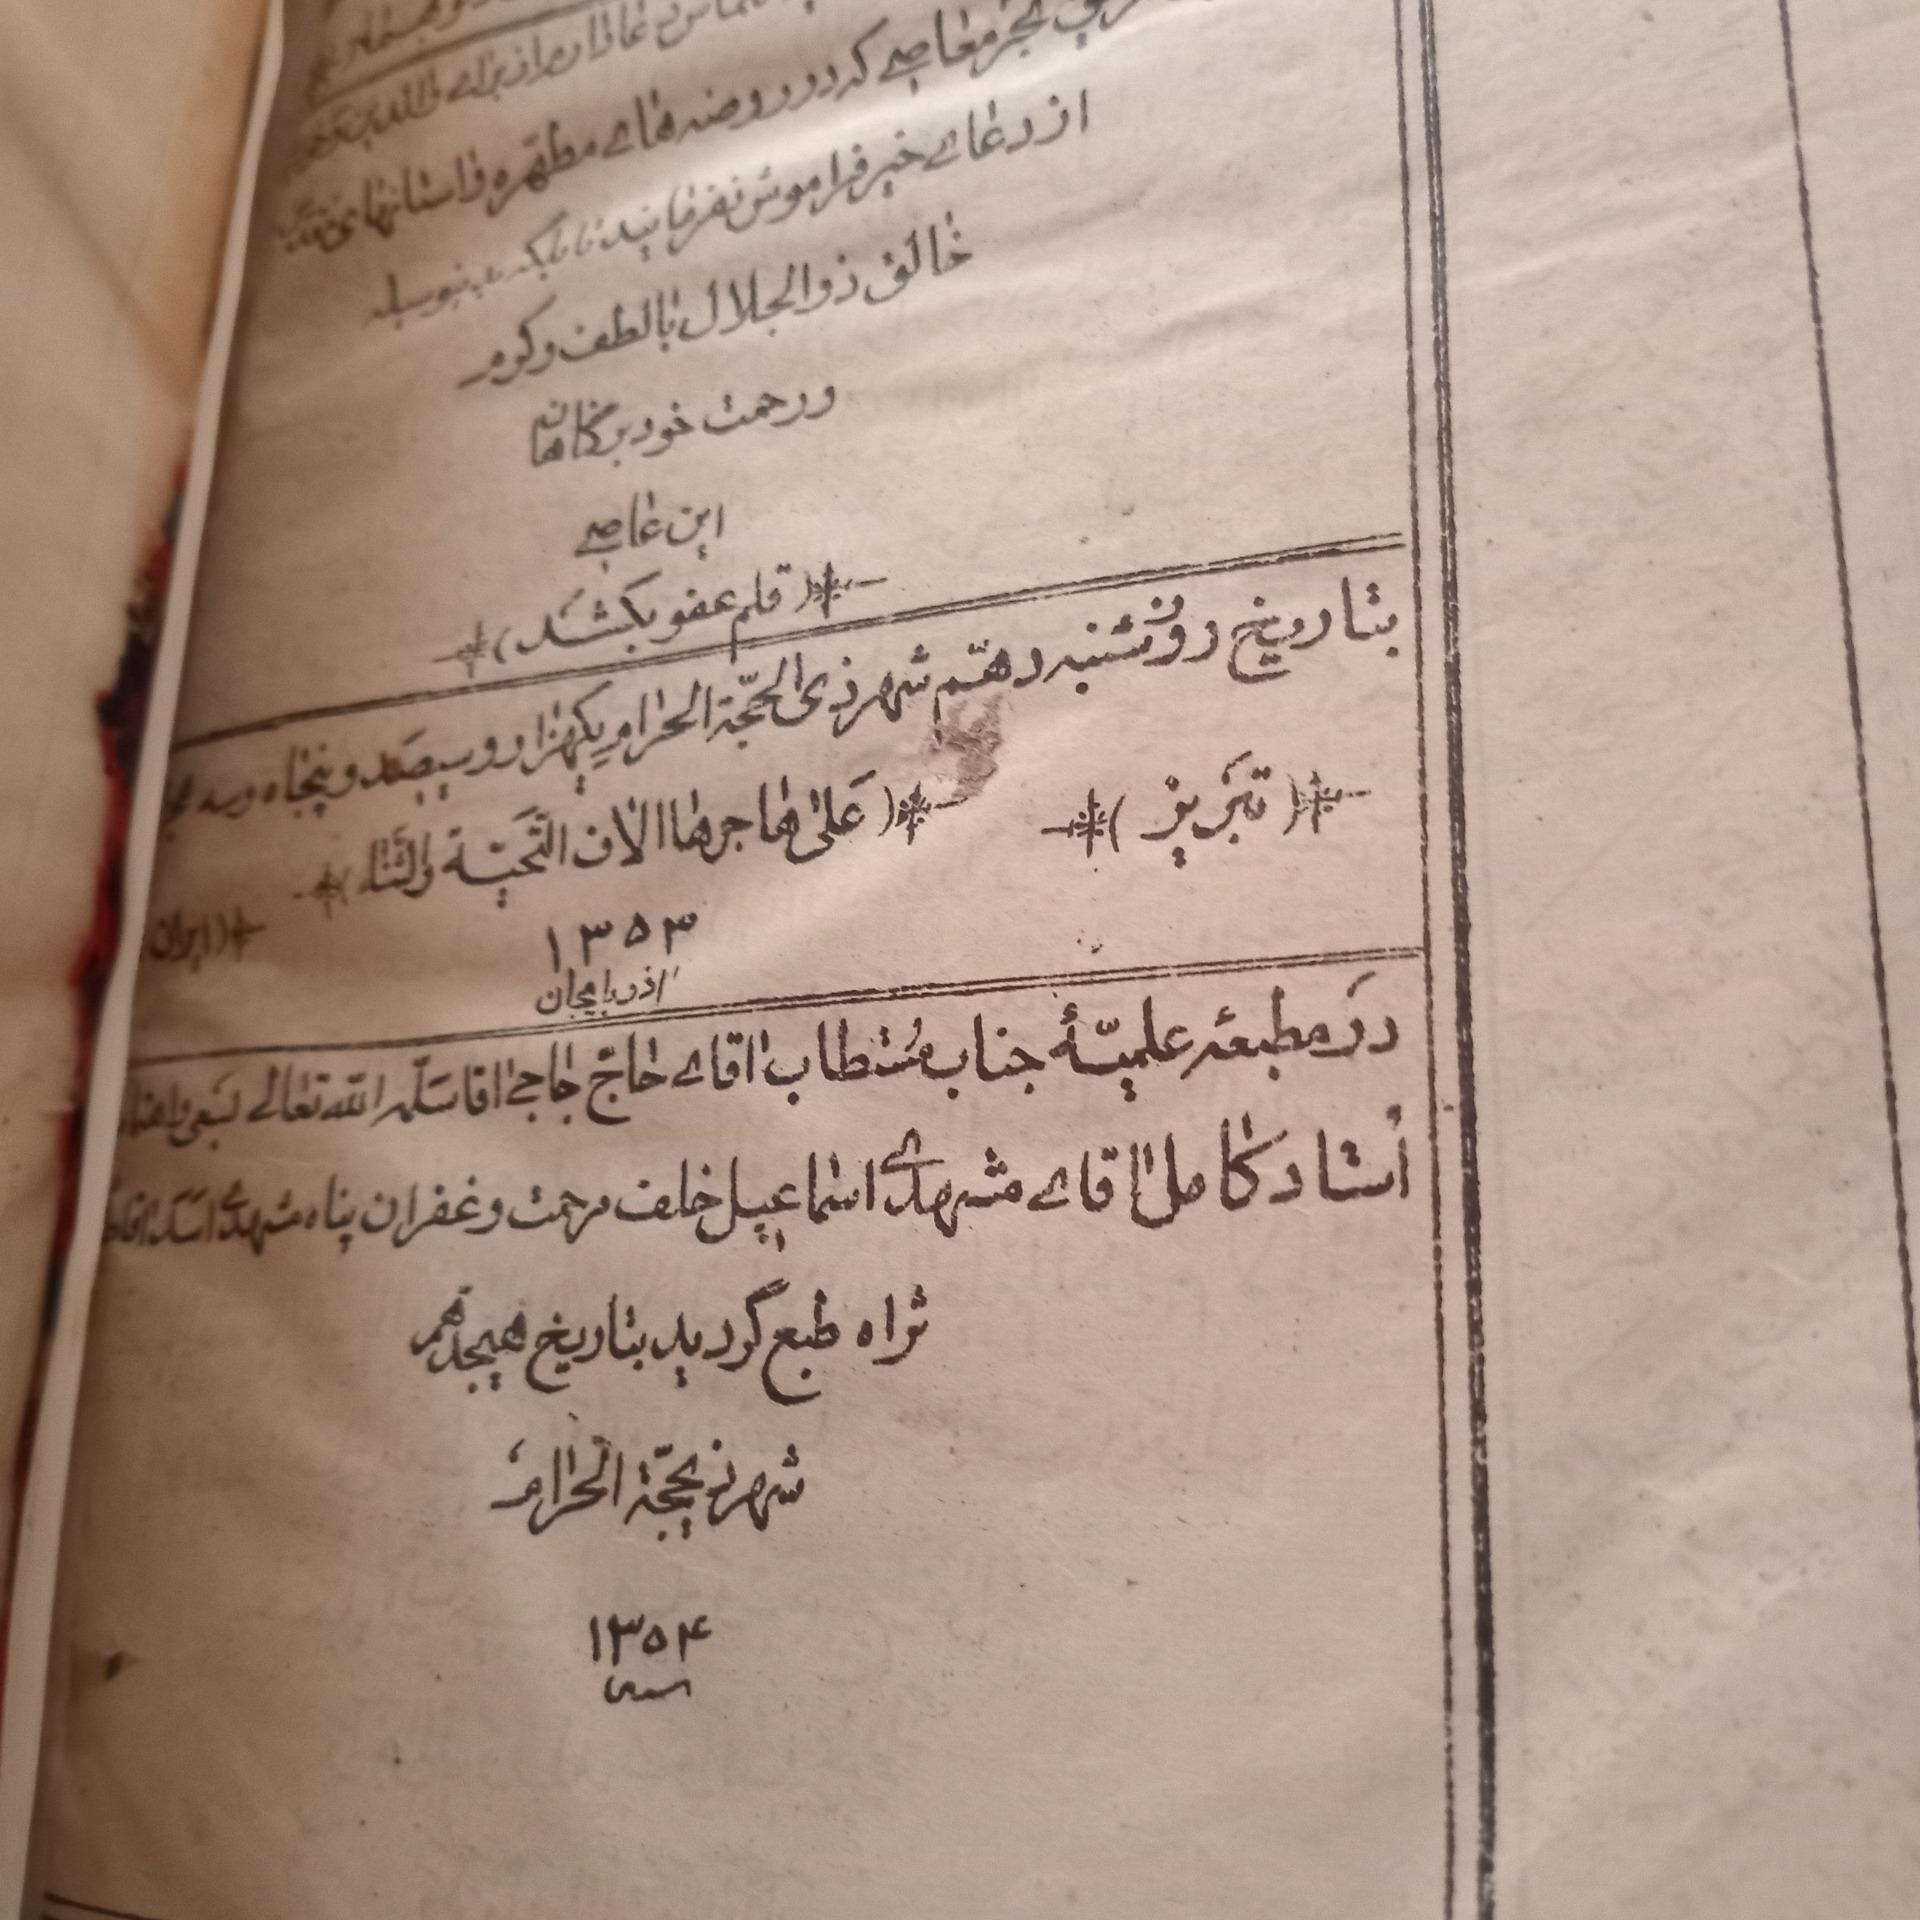 معاصے که در روضه هاے مطهره و استانهاے
از دعاے خیر فراموش نفرمایید تا بلکه
خالق ذوالجلال بالطف و کرم
و رحمت خود بر گناهان
این عاصے
(قلم عفو بکشد)
بتاریخ روز شنبه دهم شهر ذی الحجّة الحرام یکهزار و سیصد و پنجاه و سه
(تبریز) (علیٰ هاجرها الاف التّحیّة والثّناء)
۱۳۵۳ (ایران
اذربایجان
در مطبعهٔ علمیّهٔ جناب مستطاب اقاے حاج حاجے اقا سلّمه الله تعالے بسعی و
اُستاد کامل اقاے مشهدے اسماعیل خلف مرحمت و غفران پناه مشهدے اسد اقا
ثراه طبع گردید بتاریخ هیجدهم
شهر ذیحجّة الحرام
۱۳۵۴